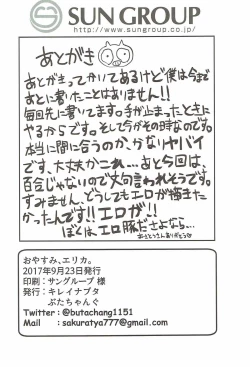 SUN GROUP
http://www.sungroup.co.jp/
あとがき
あとがきってかいてあるけど僕は今まで
あとに書いたことはありません!!
毎回先に書いてます。手が止まったときに
やるからです。そして今がその時なのです。
本当に間に合うのか、かなりヤバイ
です、大丈夫かこれ…あと今回は、
百合じゃないので文句言われそうです。
すみません、どうしてもエロが描きた
かったんです!!エロが!!
ぼくは、エロ豚ださよなら…
おやすみ、エリカ。
2017年9月23日発行
印刷:サングループ 様
発行:キレイナブタ
ぶたちゃんぐ
Twitter:@butachang1151
Mail :sakuratya777@gmail.com